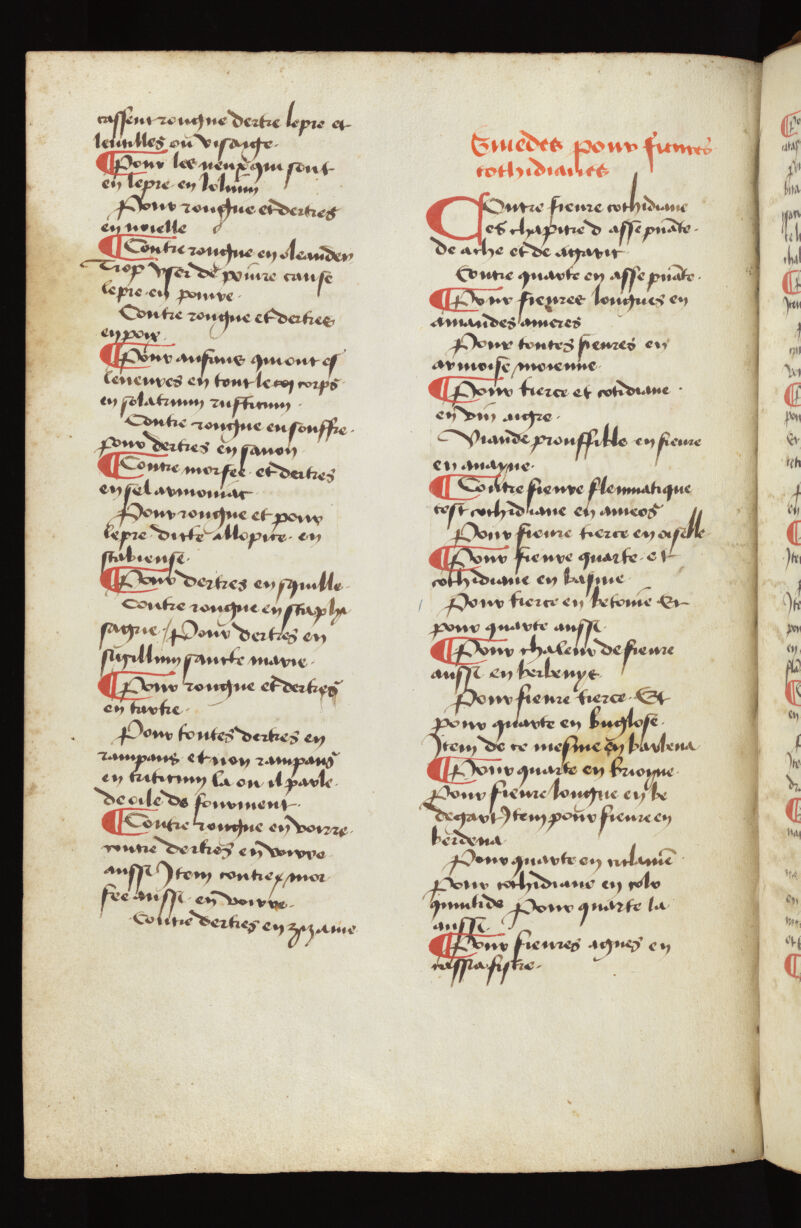 cassent rongne dertre lepre et
lentilles ou visaige.
¶ Pour les neux qui sont
en lepre en
Pour rongne et dertres
en nielle
¶ Contre rongne en oleander
Trop user de poiure cause
lepre en poiure.
Contre rongne et dertres
en poix.
¶ Pour enfans qui ont es
leueures en tout le corps
en solatrum rusticum.
Contre rongne en souffre.
pour dertres en sauon
¶ Contre morfee et dertres
en sel armoniac
Pour rongne et pour
lepre ditte allopice en
stabiense.
¶ Pour dertres en squille.
Contre rongne en staphi
sagrie. Pour dertres en
sigillum sancte marie.
¶ Pour rongne et dertres
en tartre.
Pour toutes dertres en
rampans et non rampans
en triticum la ou il parle
de oile de fourment.
¶ Contre rongne en voirre.
contre dertres en voirre
aussi Item contre mor
fee aussi en voirre.
Contre dertres en zizanie
pour fieures
cothidianes
Contre fieure cothidiane
es chapitre d asse puāte.
de ache et de agaric
Contre quarte en asse puāte.
¶ Pour fieures longues en
amandes ameres
Pour toutes fieures en
armoise moienne
¶ Pour tierce et cotidiane.
en vin aigre.
Viande prouffitble en fieure
en auayne.
¶ Contre fieure fleumatique
cest cothidiane en ameos
Pour fieure tierce en oiselle
¶ Pour fieure quarte et
cothidiane en basme
Pour tierce en betoine Et
pour quarte aussi.
¶ Pour chaleur de fieure
aussi en berbenys
Pour fieure tierce. Et
pour quarte en buglose.
Item de ce mesme en barbena
¶ Pour quarte en brione.
Pour fieure longue en be
degart Item pour fieure en
berdena.
Pour quarte en ciclamē
Pour cothidiane en colo
quintide Pour quarte la
aussi.
¶ Pour fieures agues en
cassiafistre.